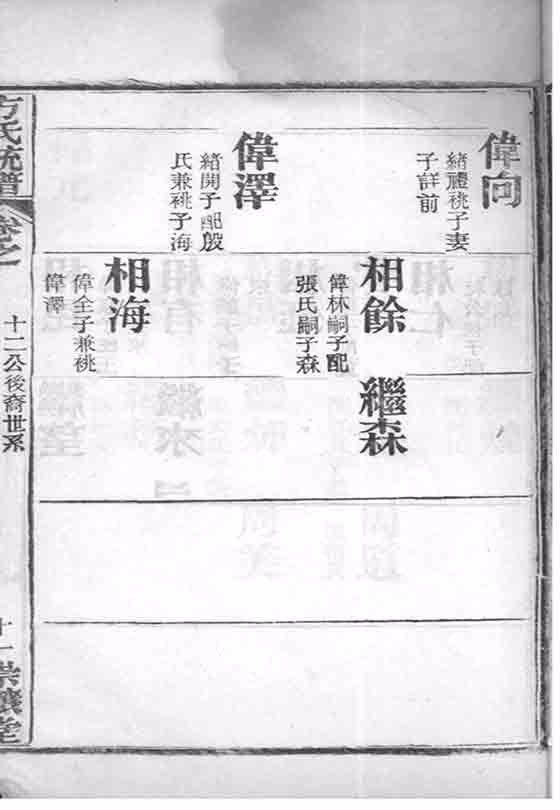 偉向
緒禮祧子妻
子詳前
偉澤
緒開子配殷
氏兼祧子海
相餘
偉林嗣子配
張氏嗣子森
相海
偉全子兼祧
偉澤
繼森
方氏統譜
卷之一
十二公後裔世系
十一
堂